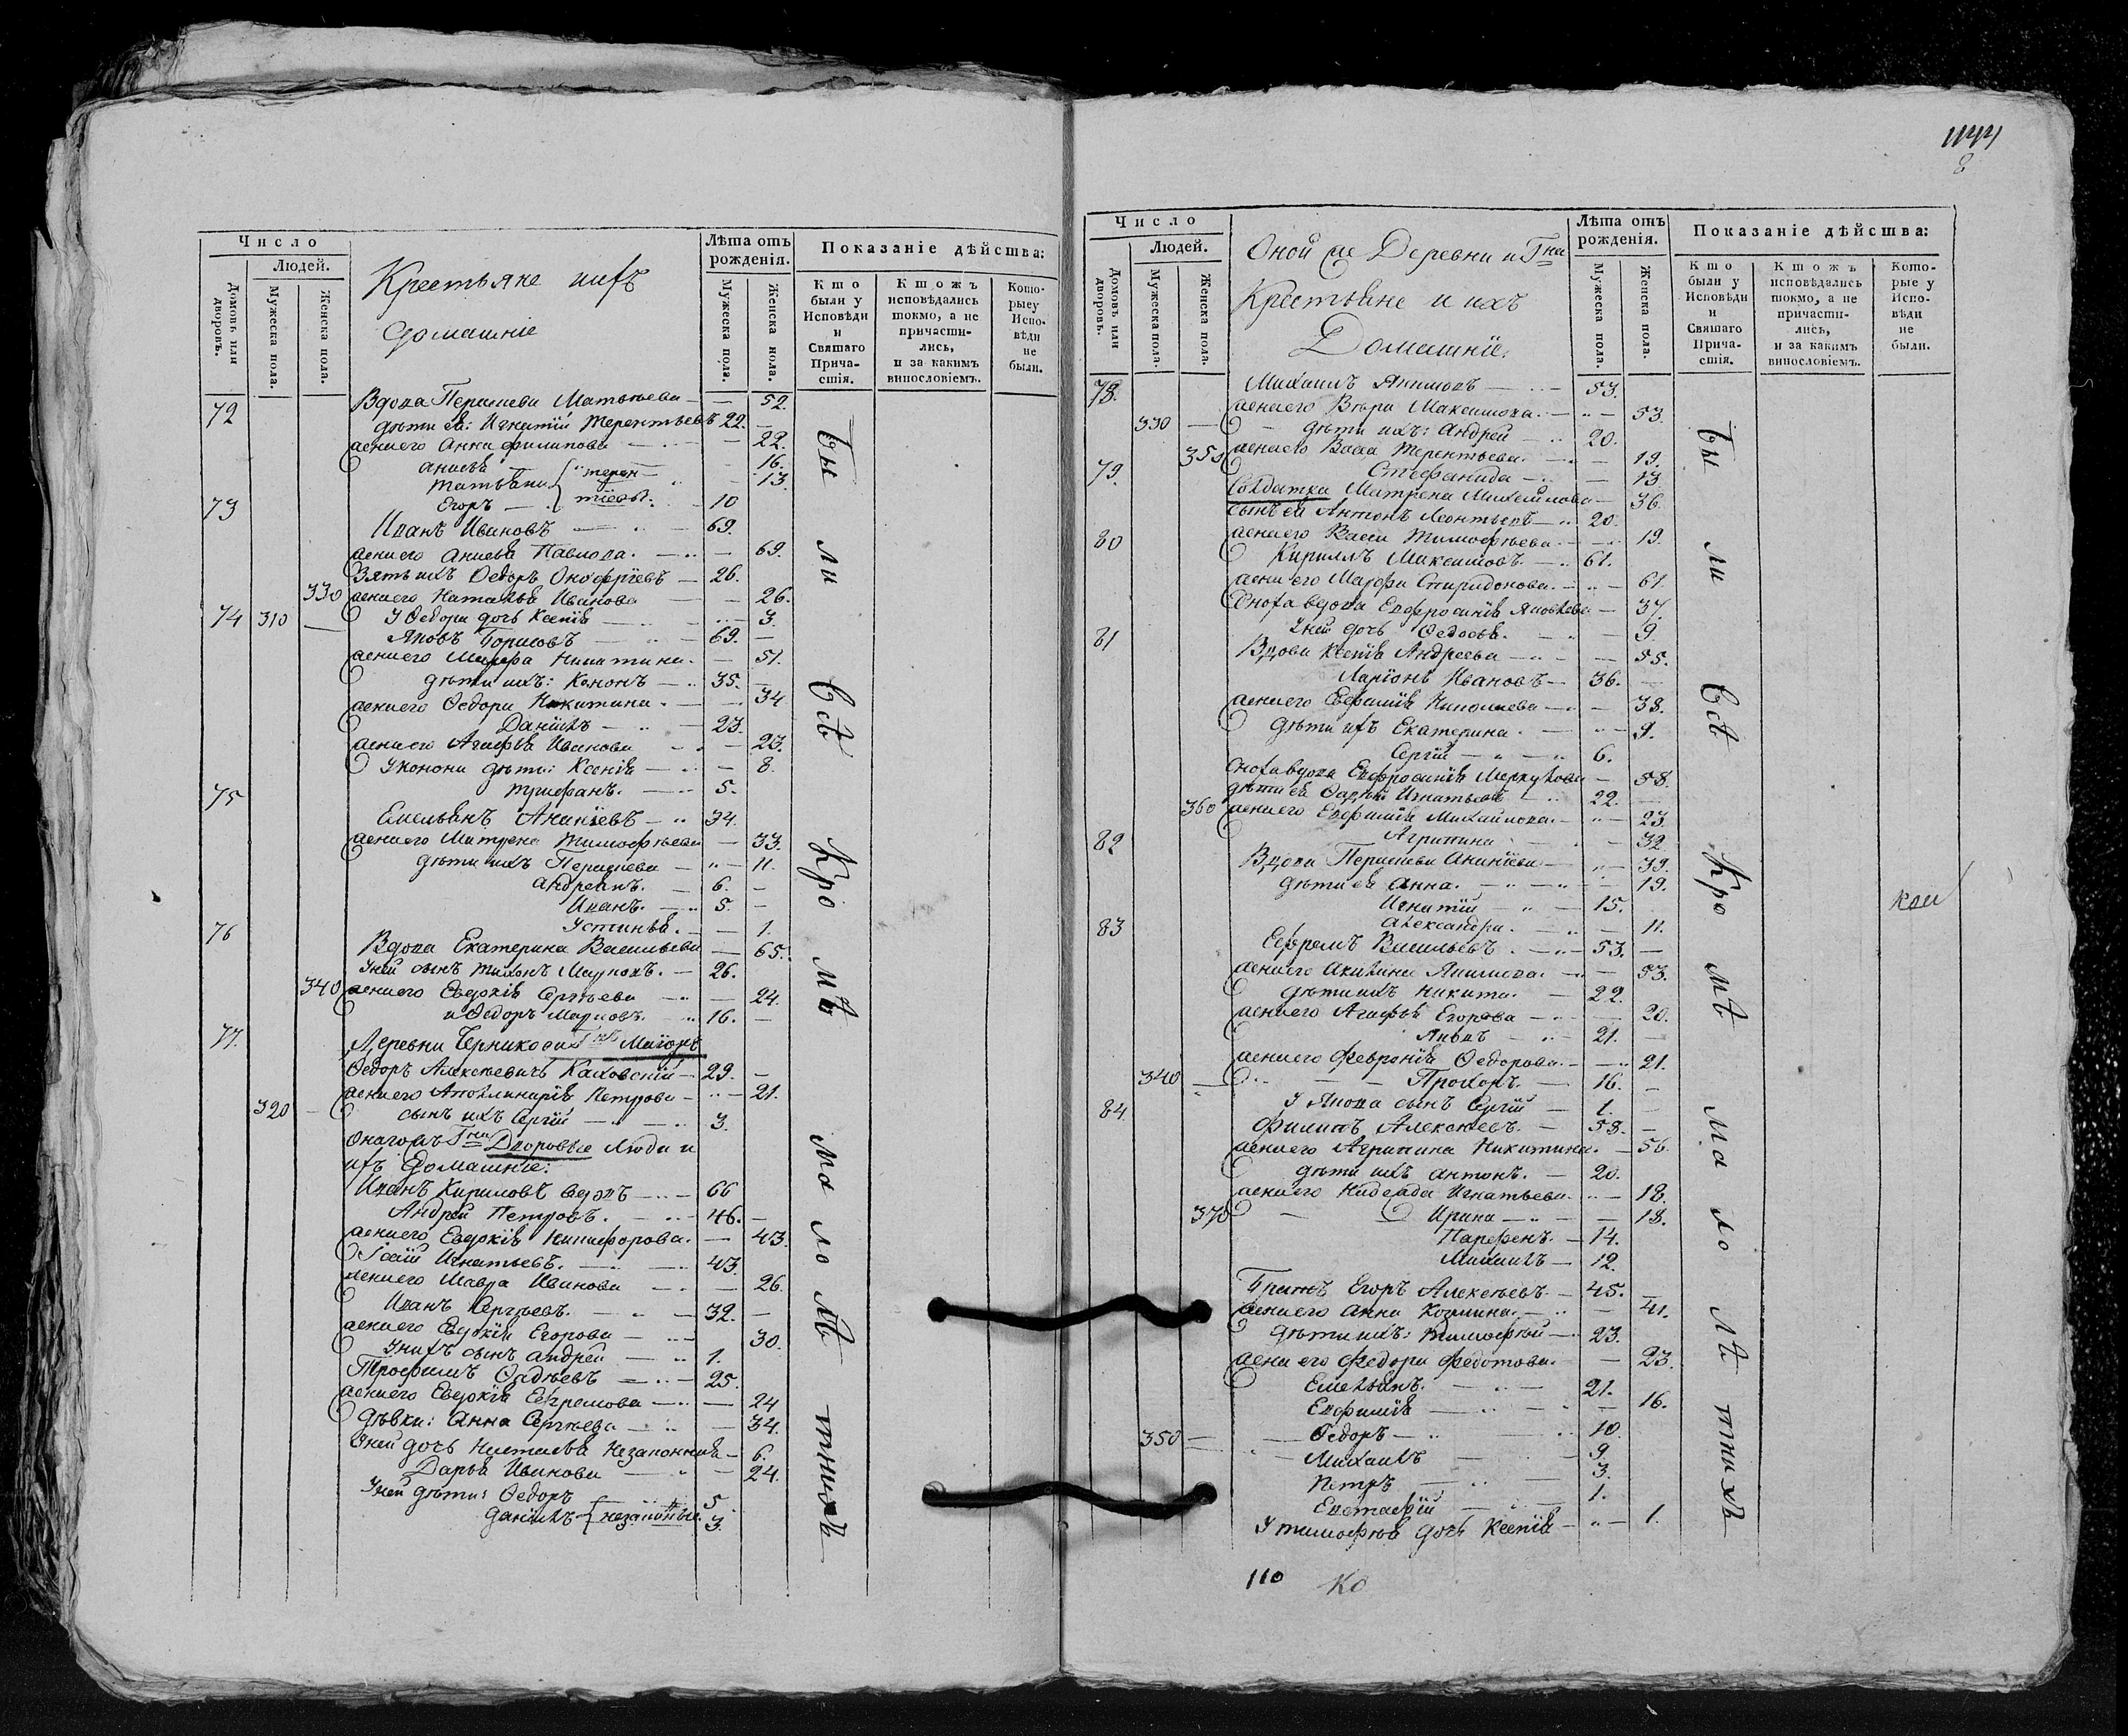 Число
Людей.
Домовъ или дворовъ.
Мужеска пола.
Женска пола.
Крестьяне ихъ
домашніе
Лѣта отъ рожденія.
Мужеска пола.
Женска пола.
Показаніе дѣйства:
Кто были у Исповѣди и Святаго Причастія.
Ктожъ исповѣдались токмо, а не причастились, и за какимъ винословіемъ.
Которые у Исповѣди не были.
72 Вдова Матвѣева — 52.
дѣти ея: Игнатій Терентьевъ 22. —
жена его Анна Филипова — 22.
Анисья 16.
Татьяна 13.
Егоръ 10
73 Иванъ Ивановъ 69.
жена его Анисья Павлова. — 69.
Зять ихъ Ѳедоръ Онофріевъ 26.
330 жена его Наталья Иванова — 26.
У Ѳедора дочь Ксенія 3.
74 310 Яковъ Борисовъ 69. —
жена его Марфа Никитина. — 51.
дѣти ихъ: Кононъ 35. —
жена его Ѳедора Никитина. 34
Даніилъ 23.
жена его Агафья Иванова — 23.
У Конона дѣти: Ксенія — 8.
Трифанъ. 5.
75 Емельянъ Ананіевъ 34.
жена его Матрена Тимофѣева — 33.
дѣти ихъ 11.
Андреянъ. 6. —
Иванъ. 5. —
Устинья. — 1.
76 Вдова Екатерина Васильева — 65.
У ней сынъ Тихонъ Марковъ. 26.
340 жена его Евдокія Сергѣева — 24.
и Ѳедоръ Марковъ. 16. —
77. Деревни Черникова Гнъ Маіоръ
Ѳедоръ Алексѣевичъ Каховскій 29. —
жена его Аполлинарія Петрова — 21.
320 сынъ ихъ Сергій 3.
Онагожъ Гна Дворовые люди и
ихъ домашніе:
Иванъ Кириловъ вдовъ 66
Андрей Петровъ. 46. —
жена его Евдокія Никифорова. — 43.
Игнатьевъ. 43.
жена его Мавра Иванова — 26.
Иванъ Сергѣевъ. 32. —
жена его Евдокія Егорова — 30.
У нихъ сынъ Андрей 1.
Трофимъ Ѳадѣевъ 25.
жена его Евдокія Ефремова — 24
дѣвки: Анна Сергѣева — 34.
У ней дочь Настасья незаконная — 6.
Дарья Иванова — 24.
У ней дѣти: Ѳедоръ 5.
Даніилъ незаконные. 3.
Бы ли всѣ кро мѣ ма ло лѣ тнихъ
8
Число
Людей.
Домовъ или дворовъ.
Мужеска пола.
Женска пола.
Оной же Деревни и Гна
Крестьяне и ихъ
Домашніе.
Лѣта отъ рожденія.
Мужеска пола.
Женска пола.
Показаніе дѣйства:
Кто были у Исповѣди и Святаго Причастія.
Ктожъ исповѣдались токмо, а не причастились, и за какимъ винословіемъ.
Которые у Исповѣди не были.
78. Михаилъ Акимовъ 53.
жена его Вѣра Максимова. — 53.
330 дѣти ихъ: Андрей 20.
350 жена его Васса Терентьева. — 19.
Стефанида — 13
79. Солдатка Матрена Михайлова — 36.
сынъ ея Антонъ Леонтьевъ 20.
жена его Васса Тимофѣева. 19.
80 Кирилъ Максимовъ. 61.
жена его Марфа Спиридонова. — 61.
Сноха вдова Евфросинія Яковлева — 37.
У ней дочь Ѳедосья. — 9.
81 Вдова Ксенія Андреева — 55.
Ларіонъ Ивановъ 36. —
жена его Евфимія Николаева — 38.
дѣти ихъ Екатерина. — 9.
Сергій 6.
Сноха вдова Евфросинія Меркулова — 58.
дѣти ея Игнатьевъ 22. —
360 жена его Евфимія Михайлова. — 23.
Агрипина — 32.
82 Вдова Ананіева — 39.
дѣти ея Анна. — 19.
Игнатій 15.
Александра. — 11.
83 Ефремъ Васильевъ. 53. —
жена его Акилина Якимова. — 53.
дѣти ихъ Никита. 22.
жена его Агафья Егорова — 20.
Яковъ 21. —
жена его Февронія Ѳедорова. — 21.
340 Прохоръ. 16. —
У Якова сынъ Сергій 1. —
84. Филипъ Алексѣевъ. 58. —
жена его Агрипина Никитина. — 56.
дѣти ихъ Антонъ. 20.
жена его Надежда Игнатьева. — 18.
370 Ирина — 18.
Парфенъ. 14.
Михаилъ 12.
Братъ Егоръ Алексѣевъ. 45. —
жена его Анна Козмина. — 41.
дѣти ихъ: Тимофѣй 23.
жена его Федора Федотова. — 23.
Емельянъ. 21.
Евфимія — 16.
350 Ѳедоръ 10.
Михаилъ 9.
Петръ 3.
Евстафій 1.
У Тимофѣя дочь Ксенія — 1.
Бы ли всѣ кро мѣ ма ло лѣ тнихъ
110